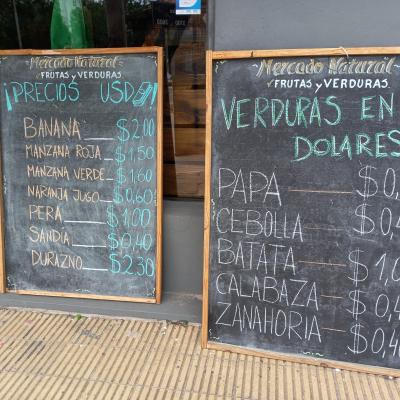 Mercado Natural
FRUTAS y VERDURAS
¡PRECIOS USD
BANANA $2.00
MANZANA ROJA $1.50
MANZANA VERDE $1.60
NARANJA JUGO $0.60
PERA $1.00
SANDIA $0.40
DURAZNO $2.30
Mercado Natural
FRUTAS y VERDURAS
VERDURAS EN
DOLARES
PAPA $0.
CEBOLLA $0.4
BATATA $1.0
CALABAZA $0.4
ZANAHORIA $0.4